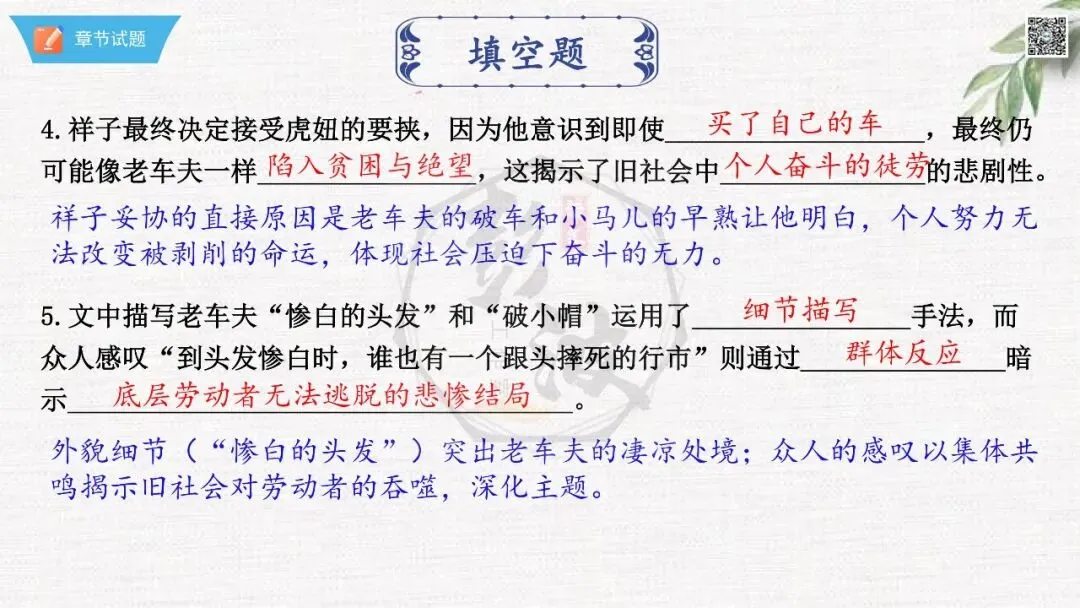 章节试题
填空题
4.祥子最终决定接受虎妞的要挟，因为他意识到即使买了自己的车，最终仍
可能像老车夫一样陷入贫困与绝望，这揭示了旧社会中个人奋斗的徒劳的悲剧性。
祥子妥协的直接原因是老车夫的破车和小马儿的早熟让他明白，个人努力无
法改变被剥削的命运，体现社会压迫下奋斗的无力。
5.文中描写老车夫“惨白的头发”和“破小帽”运用了细节描写手法，而
众人感叹“到头发惨白时，谁也有一个跟头摔死的行市”则通过群体反应暗
示底层劳动者无法逃脱的悲惨结局。
外貌细节（“惨白的头发”）突出老车夫的凄凉处境；众人的感叹以集体共
鸣揭示旧社会对劳动者的吞噬，深化主题。